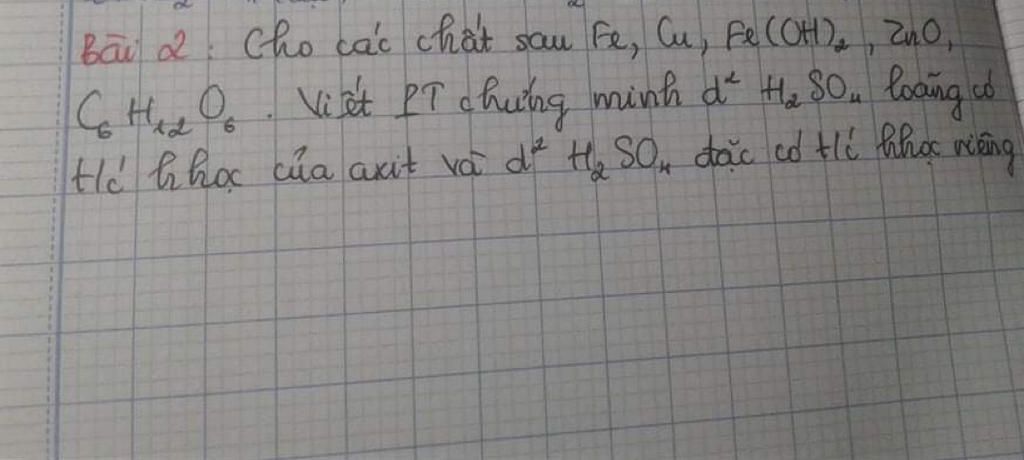 Bài 2: Cho các chất sau Fe, Cu, Fe(OH)₂, ZnO,
C₆H₁₂O₆. Viết PT chứng minh d² H₂SO₄ loãng có
t/c hhọc của axit và d² H₂SO₄ đặc có t/c hhọc riêng